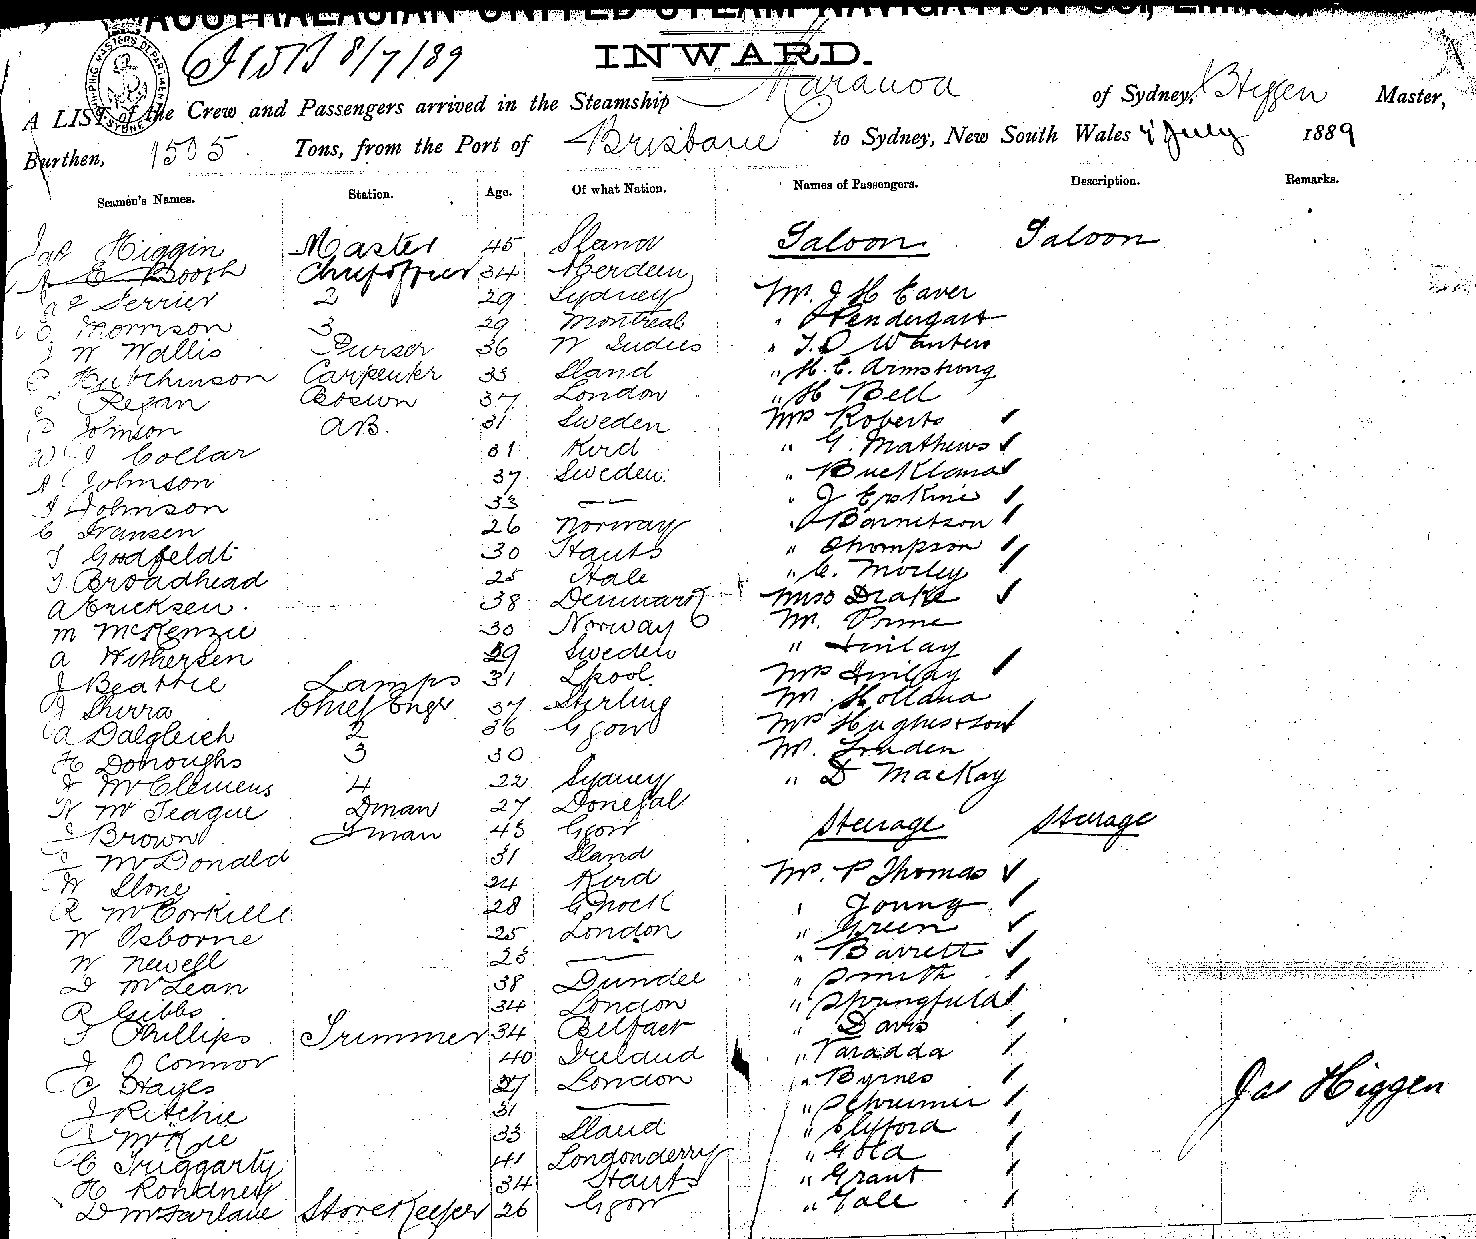 AUSTRALASIAN UNITED STEAM NAVIGATION CO., LIMITED
8/7/89
INWARD.
A LIST of the Crew and Passengers arrived in the Steamship Maranoa of Sydney, Higgen Master,
Burthen, 1505 Tons, from the Port of Brisbane to Sydney, New South Wales 4 July 1889
Seamen's Names. Station. Age. Of what Nation. Names of Passengers. Description. Remarks.
Jas Higgin Master 45 Sland Saloon Saloon
A E Booth Chief Officer 34 Aberdeen
Ferrier 2 29 Sydney Mr. J H Eaver
Morrison 3 29 Montreal " Pendergast
J W Wallis Purser 36 W Indies " Wanters
C Hutchinson Carpenter 33 Sland " H. E. Armstrong
Regan Bosun 37 London " H Bell
Johnson AB. 31 Sweden Mrs Roberts
W J Collar 31 Kird " G. Mathews
A Johnson 37 Sweden " Buckland
J Johnson 33 — " J Erskine
C Fransen 26 Norway " Barnetson
J Godfeldt 30 Hants " Thompson
J Broadhead 25 Hale " C. Morley
A Ericksen 38 Denmark Miss Drake
M McKenzie 30 Norway Mr. Prime
A Withersen 29 Sweden " Finlay
J Beattie Lamps 31 Lpool Mrs Finlay
J Shirra Chief Engr 37 Sterling Mr. Holland
A Dalgleich 2 36 Ggow Mrs Hughes & son
H Donoughs 3 30 Mr. Linden
J McClemens 4 22 Sydney " D MacKay
N McTeague Dman 27 Donegal
J Brown Fman 43 Ggow Steerage Steerage
McDonald 31 Sland
W Slone 24 Kird Mr. P Thomas
R McCorkill 28 Gnock " Young
W Osborne 25 London " Green
W Newell 23 — " Barrett
D McLean 38 Dundee " Smith
R Gibbs 34 London " Springfield
Phillips Trimmer 34 Belfast " Davis
J O Connor 40 Ireland " Taradda
C Hayes 27 London " Byrnes
J Ritchie 31 — " Schreimer
J McKie 33 Sland " Clifford
C Friggarty 41 Londonderry " Gold
H Rondney 34 Hants " Grant
D McFarlane StoreKeeper 26 Ggow " Gale
Jas Higgen